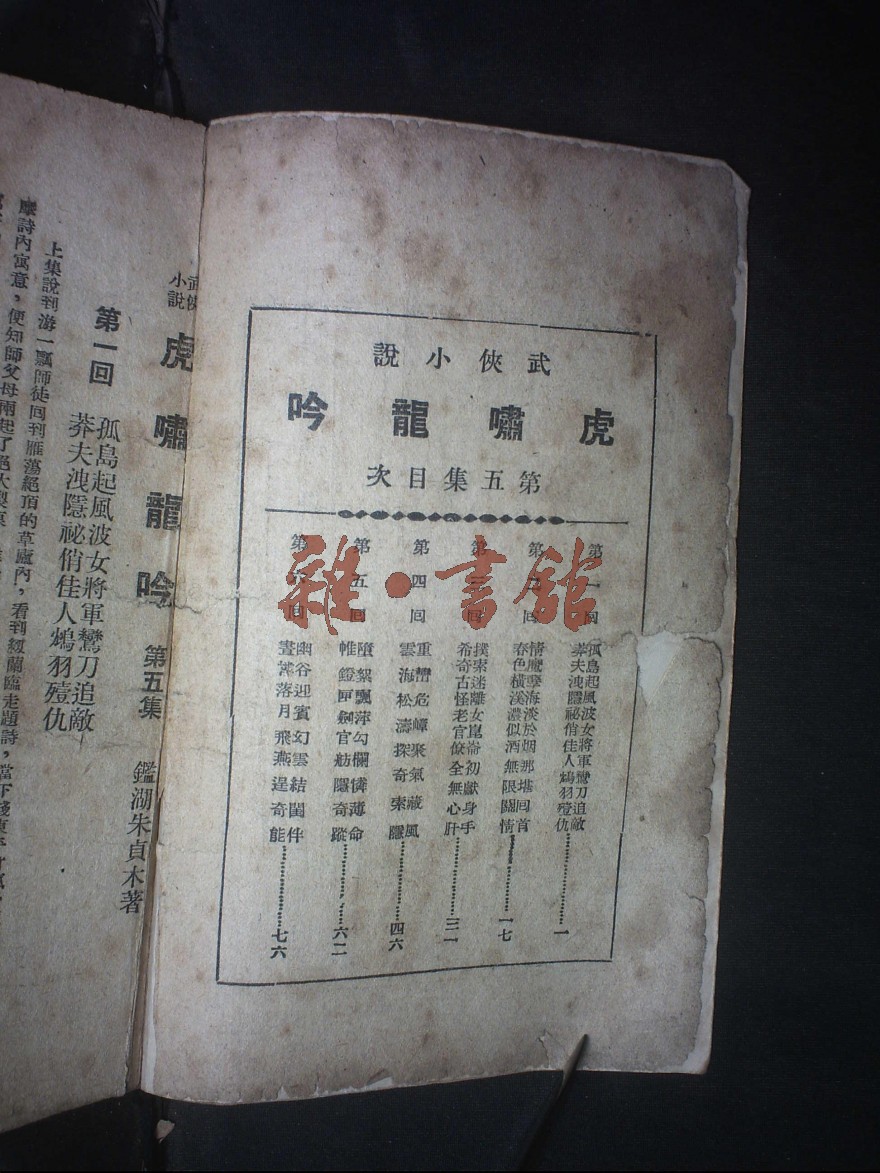 武俠小說
虎嘯龍吟
第五集目次
第一回
孤島起風波女將軍鸞刀追敵
莽夫洩隱祕俏佳人鴆羽殪仇
一
第二回
情魔孽海淡於烟那堪回首
春色橫溪濃似酒無限關情
一七
第三回
撲索迷離女崑崙初獻身手
希奇古怪老官僚全無心肝
第四回
重漕危嶂聚氣藏風
雲海松濤探奇索隱
四六
第五回
墮絮飄萍勾欄憐薄命
帷鐙匣劍官舫隱奇蹤
六二
第六回
幽谷迎賓幻雲結閨伴
畫樑落月飛燕逞奇能
七六
雜·書館
武俠小說
虎嘯龍吟
第五集
鑑湖朱貞木著
第一回
孤島起風波女將軍鸞刀追敵
莽夫洩隱祕俏佳人鴆羽殪仇
上集說到游一瓢師徒回到雁蕩絕頂的草廬內，看到紉蘭臨走題詩，當下錢東平
詩內寓意，便知師父母兩起了絕大